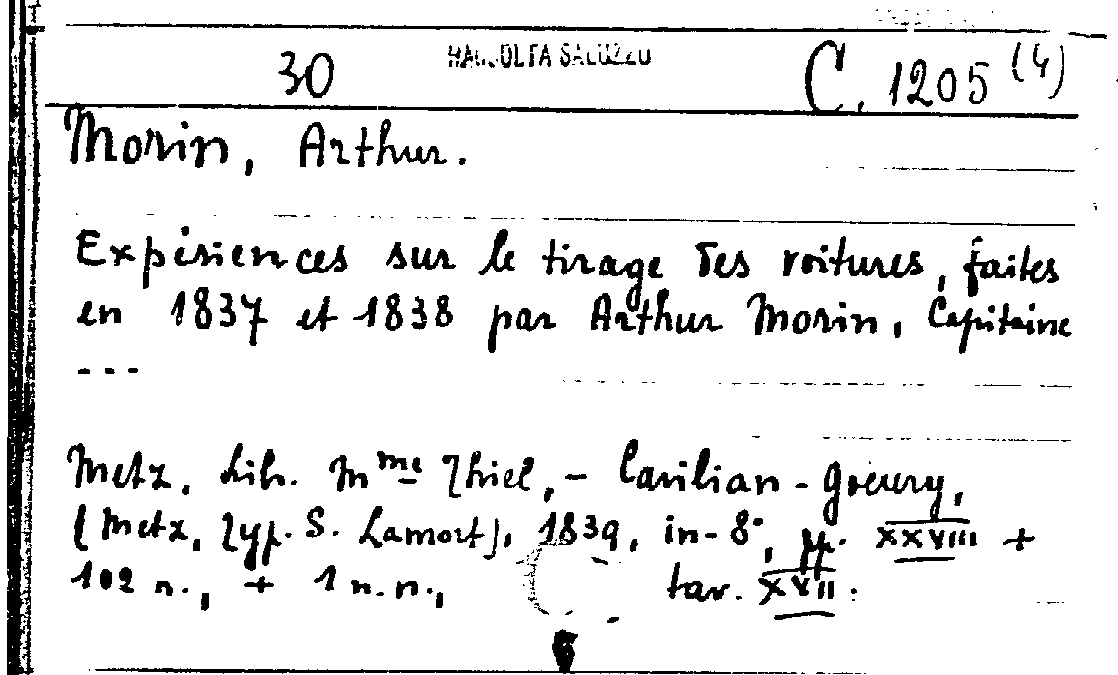 30 RACCOLTA SALUZZO C. 1205 (4)
Morin, Arthur.
Expériences sur le tirage des voitures, faites
en 1837 et 1838 par Arthur Morin, Capitaine
---
Metz, Lib. Mme Thiel, - Carilian-Goeury,
(Metz, Typ. S. Lamort), 1839, in-8°, pp. XXVIII +
102 n., + 1 n.n., tav. XVII.